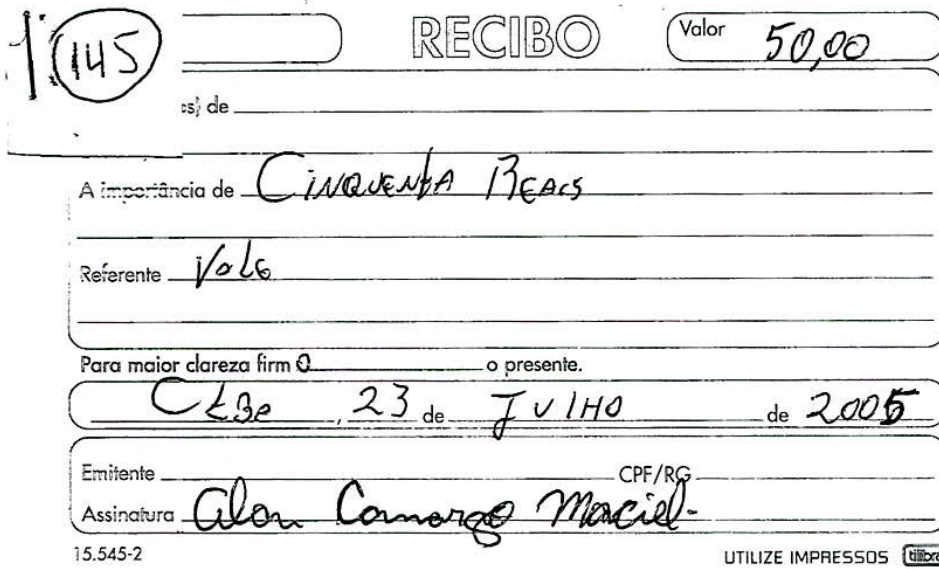 145
RECIBO
Valor 50,00
es) de
A importância de CINQUENTA REAIS
Referente Vale
Para maior clareza firm O o presente.
Ctba, 23 de JULHO de 2005
Emitente CPF/RG
Assinatura Alan Camargo Maciel
15.545-2 UTILIZE IMPRESSOS tilibra